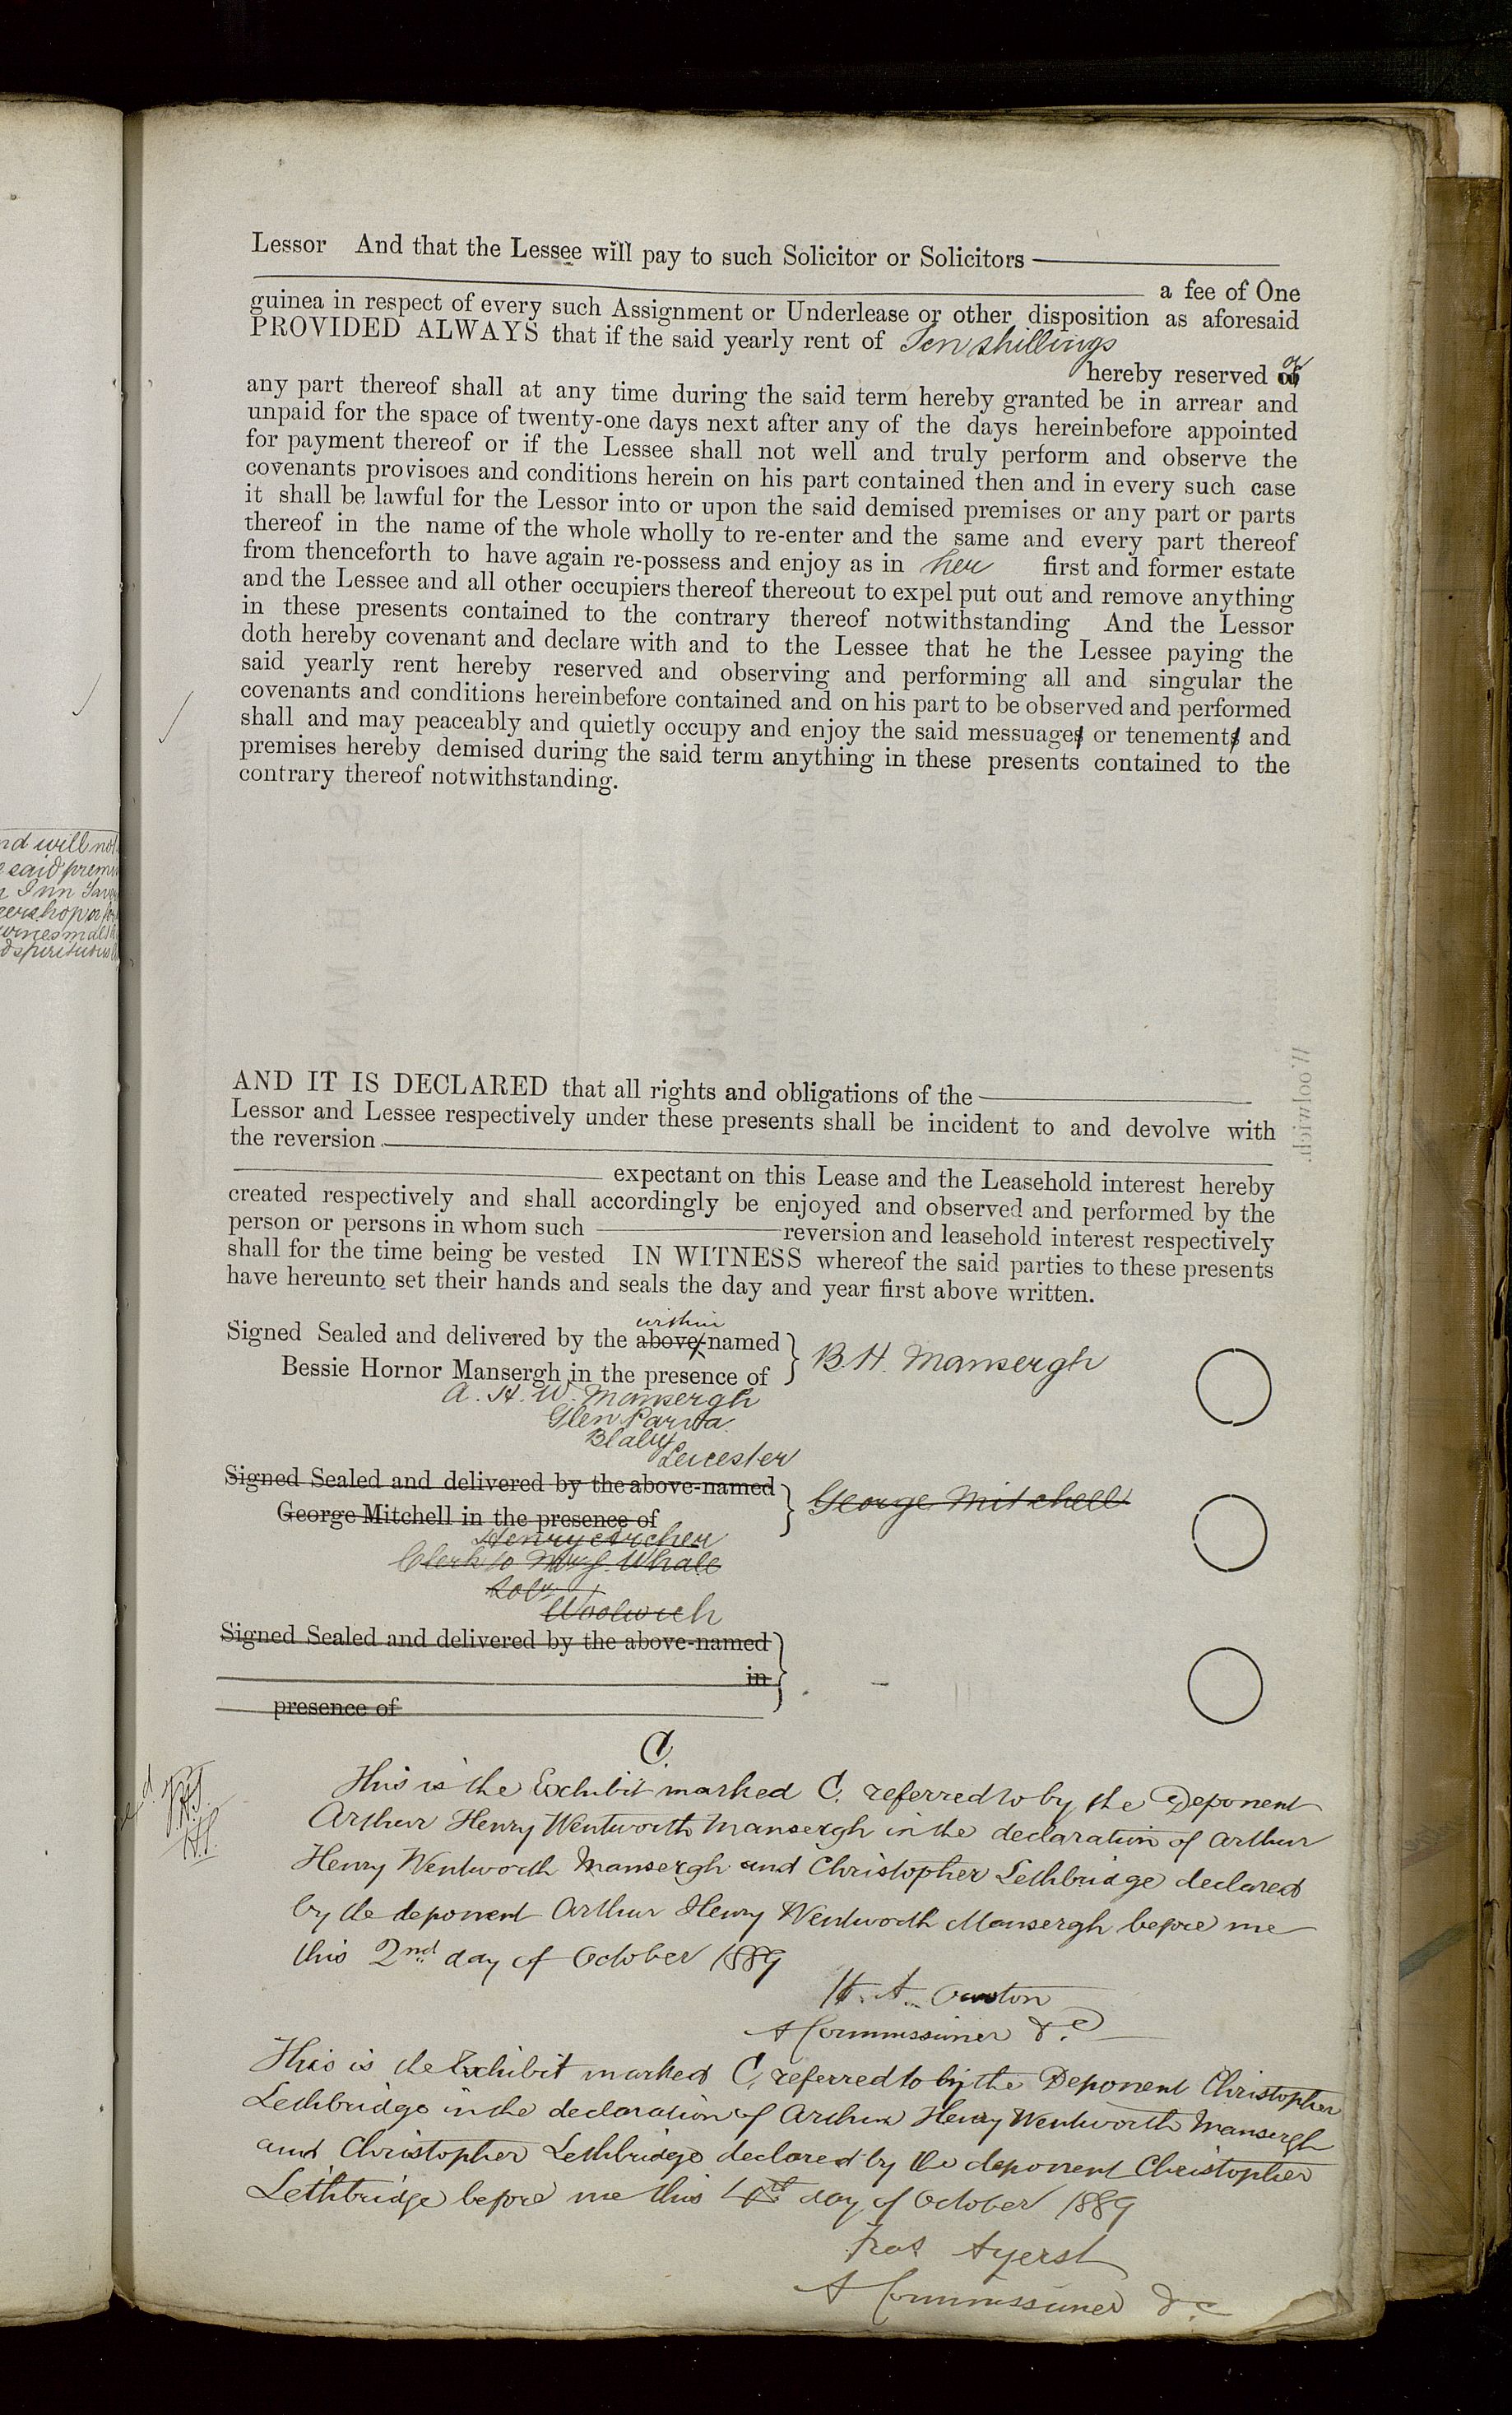 Lessor And that the Lessee will pay to such Solicitor or Solicitors
a fee of One
guinea in respect of every such Assignment or Underlease or other disposition as aforesaid
PROVIDED ALWAYS that if the said yearly rent of Ten shillings
hereby reserved or
any part thereof shall at any time during the said term hereby granted be in arrear and
unpaid for the space of twenty-one days next after any of the days hereinbefore appointed
for payment thereof or if the Lessee shall not well and truly perform and observe the
covenants provisoes and conditions herein on his part contained then and in every such case
it shall be lawful for the Lessor into or upon the said demised premises or any part or parts
thereof in the name of the whole wholly to re-enter and the same and every part thereof
from thenceforth to have again re-possess and enjoy as in her first and former estate
and the Lessee and all other occupiers thereof thereout to expel put out and remove anything
in these presents contained to the contrary thereof notwithstanding And the Lessor
doth hereby covenant and declare with and to the Lessee that he the Lessee paying the
said yearly rent hereby reserved and observing and performing all and singular the
covenants and conditions hereinbefore contained and on his part to be observed and performed
shall and may peaceably and quietly occupy and enjoy the said messuages or tenements and
premises hereby demised during the said term anything in these presents contained to the
contrary thereof notwithstanding.
nd will not
said prem
Inn
AND IT IS DECLARED that all rights and obligations of the
Lessor and Lessee respectively under these presents shall be incident to and devolve with
the reversion
expectant on this Lease and the Leasehold interest hereby
created respectively and shall accordingly be enjoyed and observed and performed by the
person or persons in whom such reversion and leasehold interest respectively
shall for the time being be vested IN WITNESS whereof the said parties to these presents
have hereunto set their hands and seals the day and year first above written.
within
Signed Sealed and delivered by the above-named
Bessie Hornor Mansergh in the presence of
B. H. Mansergh
A. H. W. Mansergh
Glen Parva
Blaby
Leicester
Signed Sealed and delivered by the above-named
George Mitchell in the presence of
George Mitchell
Henry Archer
Clerk to Mr J. Whale
Solr
Woolwich
Signed Sealed and delivered by the above-named
in
presence of
C.
This is the Exhibit marked C. referred to by the Deponent
Arthur Henry Wentworth Mansergh in the declaration of Arthur
Henry Wentworth Mansergh and Christopher Lethbridge declared
by the deponent Arthur Henry Wentworth Mansergh before me
this 2nd day of October 1889
H. A. Owston
A Commissioner &c
This is the Exhibit marked C. referred to by the Deponent Christopher
Lethbridge in the declaration of Arthur Henry Wentworth Mansergh
and Christopher Lethbridge declared by the deponent Christopher
Lethbridge before me this 4th day of October 1889
Fras Ayerst
A Commissioner &c